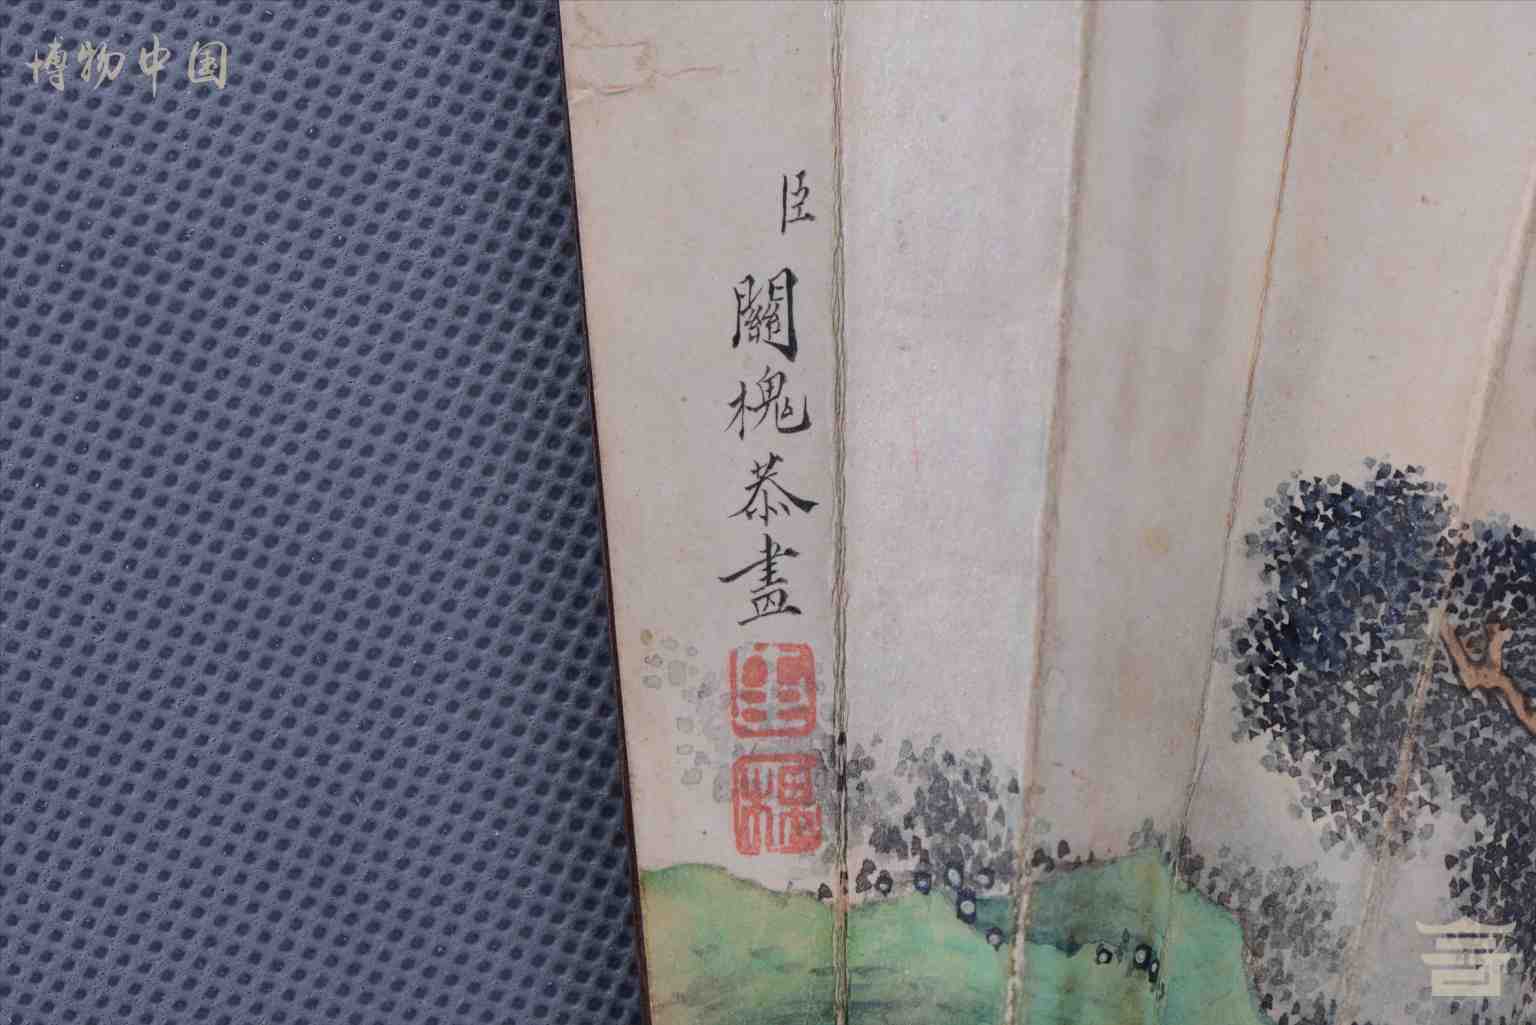 博物中国
臣關槐恭畫
臣
槐